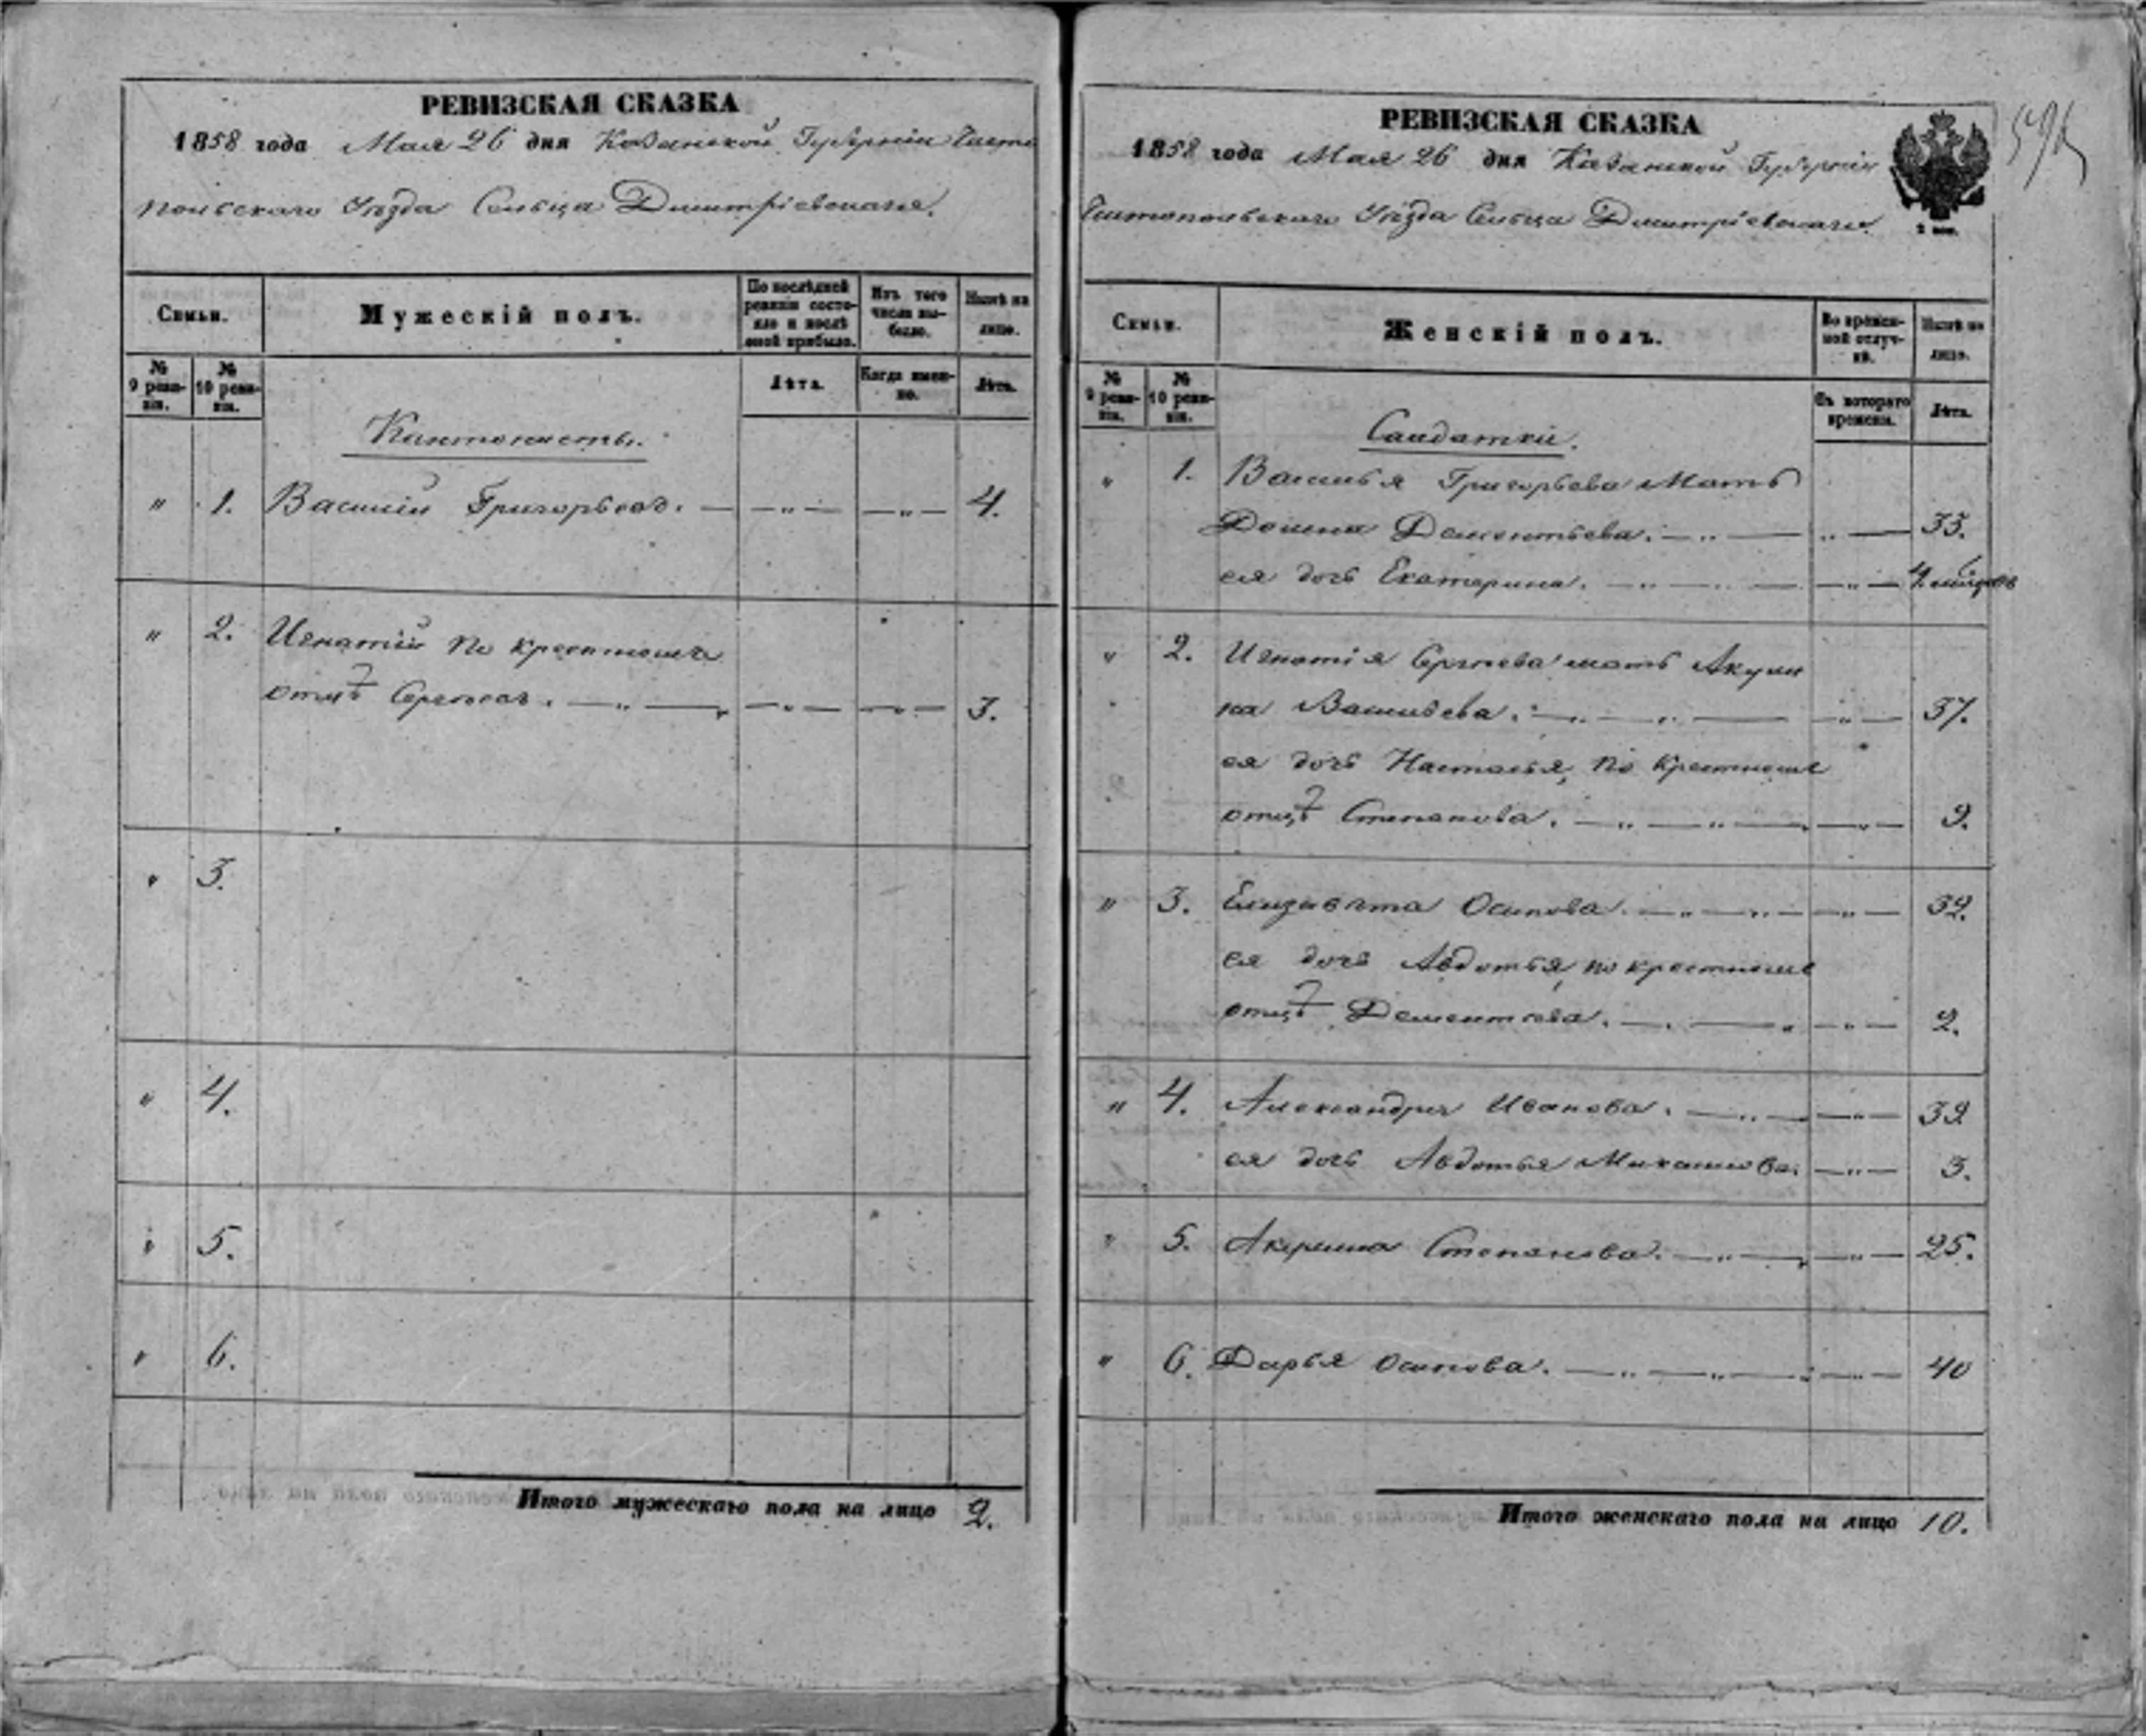 РЕВИЗСКАЯ СКАЗКА
1858 года Мая 26 дня Казанской Губерніи Чисто
польскаго Уѣзда Сельца Димитріевскаго.
Семьи.
Мужескій полъ.
По послѣдней ревизіи состояло и послѣ оной прибыло.
Изъ того числа выбыло.
Нынѣ на лицо.
№ 9 ревизіи.
№ 10 ревизіи.
Лѣта.
Когда именно.
Лѣта.
Кантонисты.
" 1. Василій Григорьевъ. — " — — " — 4.
" 2. Игнатій по крестному
отцѣ Сергѣевъ. — " — — " — — " — 3.
" 3.
" 4.
" 5.
" 6.
Итого мужескаго пола на лицо 2.
РЕВИЗСКАЯ СКАЗКА
1858 года Мая 26 дня Казанской Губерніи
Чистопольскаго Уѣзда Сельца Димитріевскаго.
2 коп.
Семьи.
Женскій полъ.
Во временной отлучкѣ.
Нынѣ на лицо.
№ 9 ревизіи.
№ 10 ревизіи.
Съ котораго времени.
Лѣта.
Солдатки.
" 1. Василья Григорьева Мать
Домна Дементьева. — " — " — 33.
ея дочь Екатерина. — " — " — — " — 4.
" 2. Игнатія Сергѣева мать Акули
на Васильева. — " — " — — " — 37.
ея дочь Настасья, по крестному
отцѣ Степанова. — " — " — — " — 9.
" 3. Елизавѣта Осипова. — " — " — — " — 32.
ея дочь Авдотья, по крестному
отцѣ Дементьева. — " — " — " — 2.
" 4. Александра Иванова. — " — — " — 39
ея дочь Авдотья Михайлова. — " — 3.
" 5. Степанова. — " — — " — 25.
" 6. Дарья Осипова. — " — " — — " — 40
Итого женскаго пола на лицо 10.